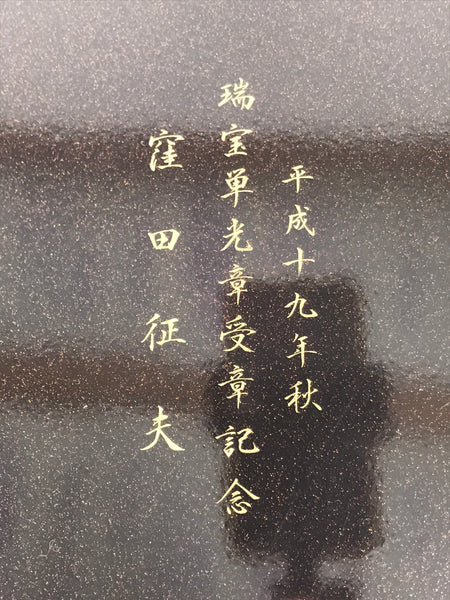 平成十九年秋
瑞宝単光章受章記念
窪田征夫